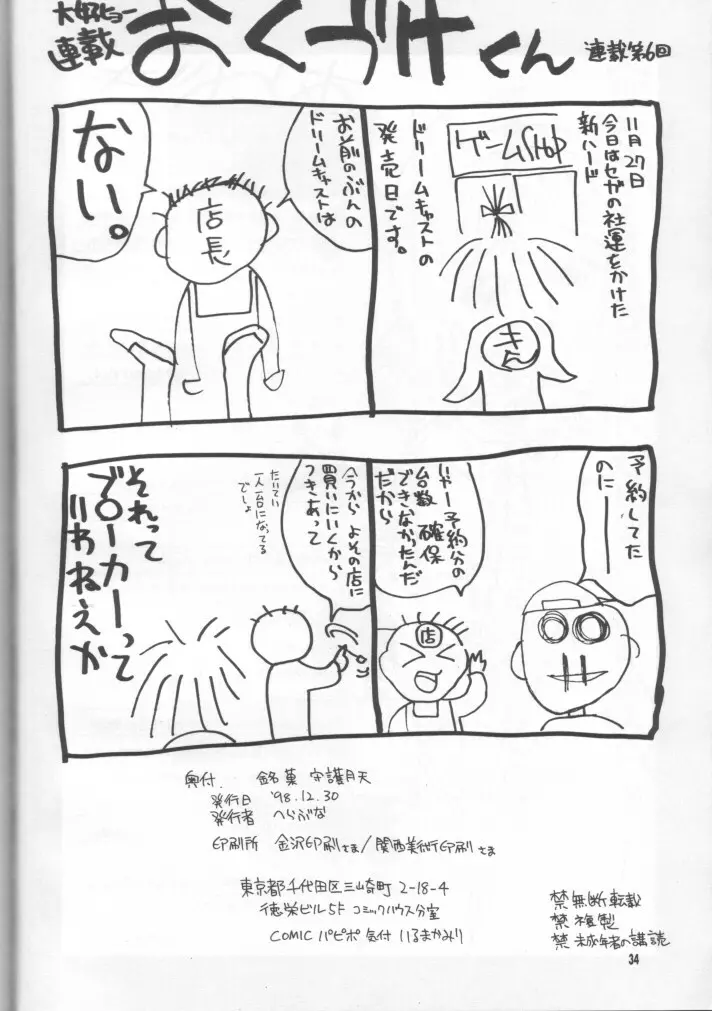 大好ヒョー
連載
おくづけくん
連載第6回
11月27日
今日はセガの社運をかけた
新ハード
ドリームキャストの
発売日です。
ゲームSHOP
きん
お前のぶんの
ドリームキャストは
店長
ない。
予約してた
のにーー
いやー予約分の
台数確保
できなかったんだ
だから
店
今から よその店に
買いにいくから
つきあって
たいてい
一人一台になってる
でしょ
それって
ブローカーって
いわねえか
奥付. 銘菓 守護月天
発行日 '98.12.30
発行者 へらぶな
印刷所 金沢印刷さま/関西美術印刷さま
東京都千代田区三崎町 2-18-4
徳栄ビル5F コミックハウス分室
COMIC パピポ 気付 いるまかみり
禁無断転載
禁複製
禁未成年者の講読
34